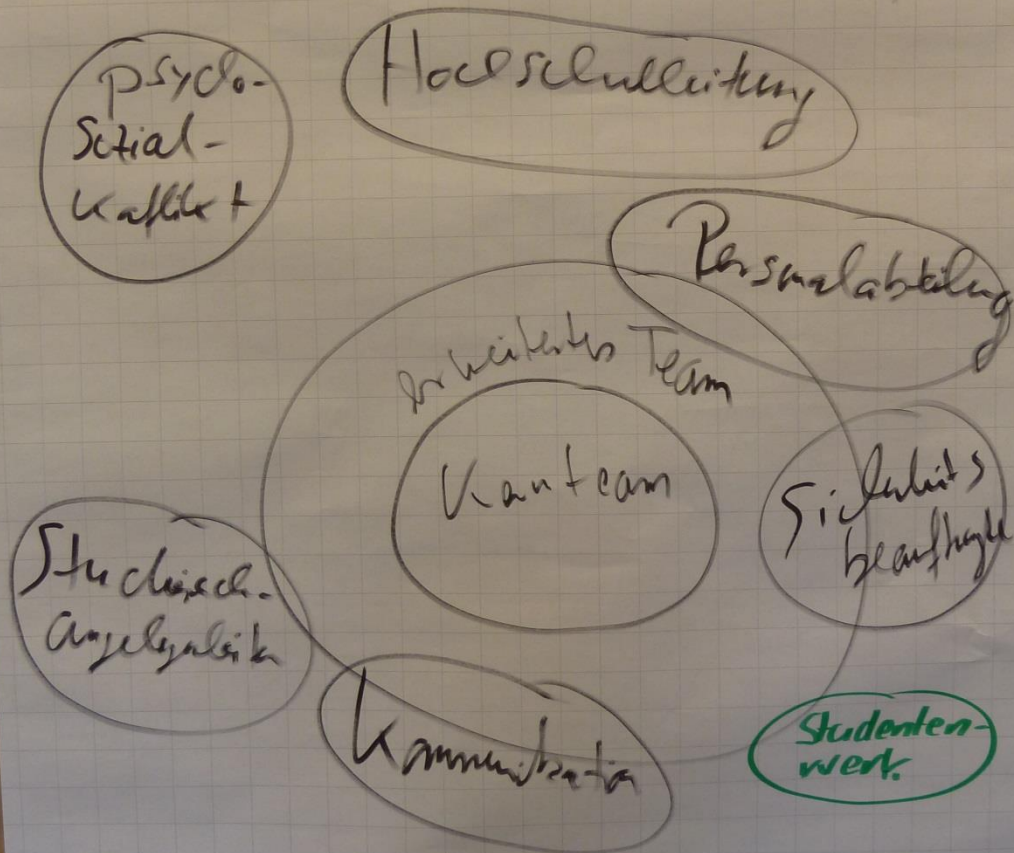 psycho-
Sozial-
Konflikt
Hochschulleitung
Personalabteilung
erweitertes Team
Kernteam
Sicherheits
beauftragte
Studiensch.
Angelegenheiten
Kommunikation
Studenten-
werk.